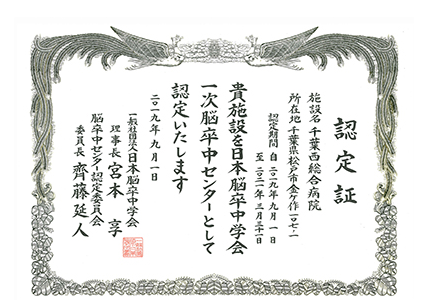 認定証
施設名 千葉西総合病院
所在地 千葉県松戸市金ケ作一〇七-一
認定期間 自 二〇一九年 九月 一日
至 二〇二一年 三月三十一日
貴施設を日本脳卒中学会
一次脳卒中センターとして
認定いたします
二〇一九年 九月 一日
一般社団法人日本脳卒中学会
理事長 宮本 享
脳卒中センター認定委員会
委員長 齊藤延人